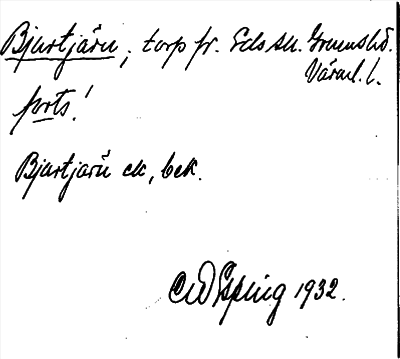 Bjurtjärn, torp fr. Eds sn. Grums hd.
Värml. l.
forts!
Bjurtjärn ek, bek.
CWEsping 1932.